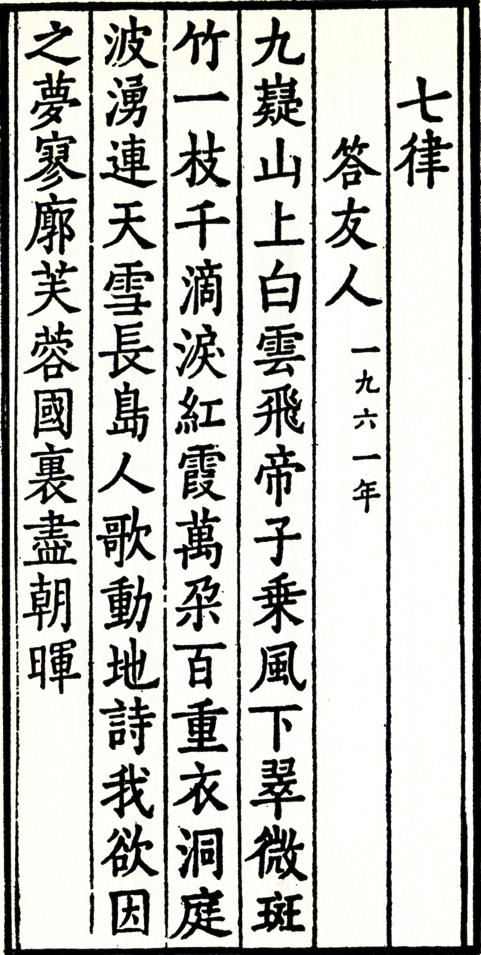 七律
答友人 一九六一年
九嶷山上白雲飛帝子乗風下翠微斑
竹一枝千滴淚紅霞萬朶百重衣洞庭
波湧連天雪長島人歌動地詩我欲因
之夢寥廓芙蓉國裏盡朝暉